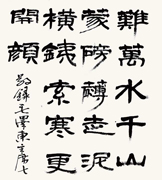 難萬水千山
蒙磅礴走泥
橫銕索寒更
開顏
敬錄毛澤東主席七